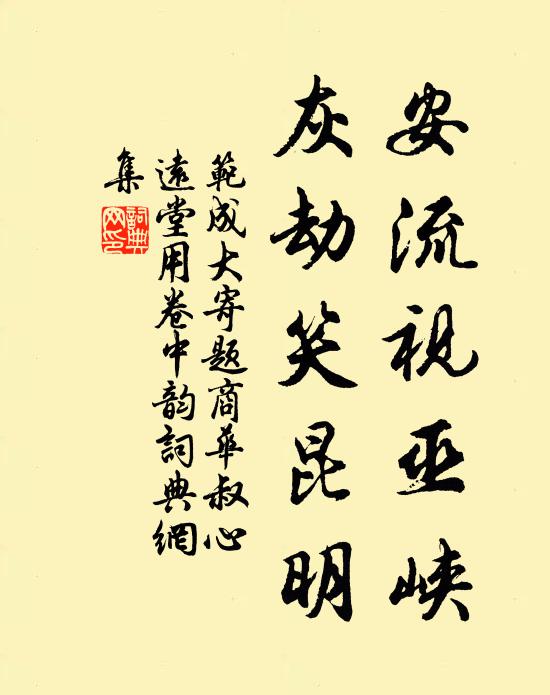 安流視巫峽
灰劫笑昆明
範成大寄題商華叔心
遠堂用卷中韵詞典網
集
詞典網印